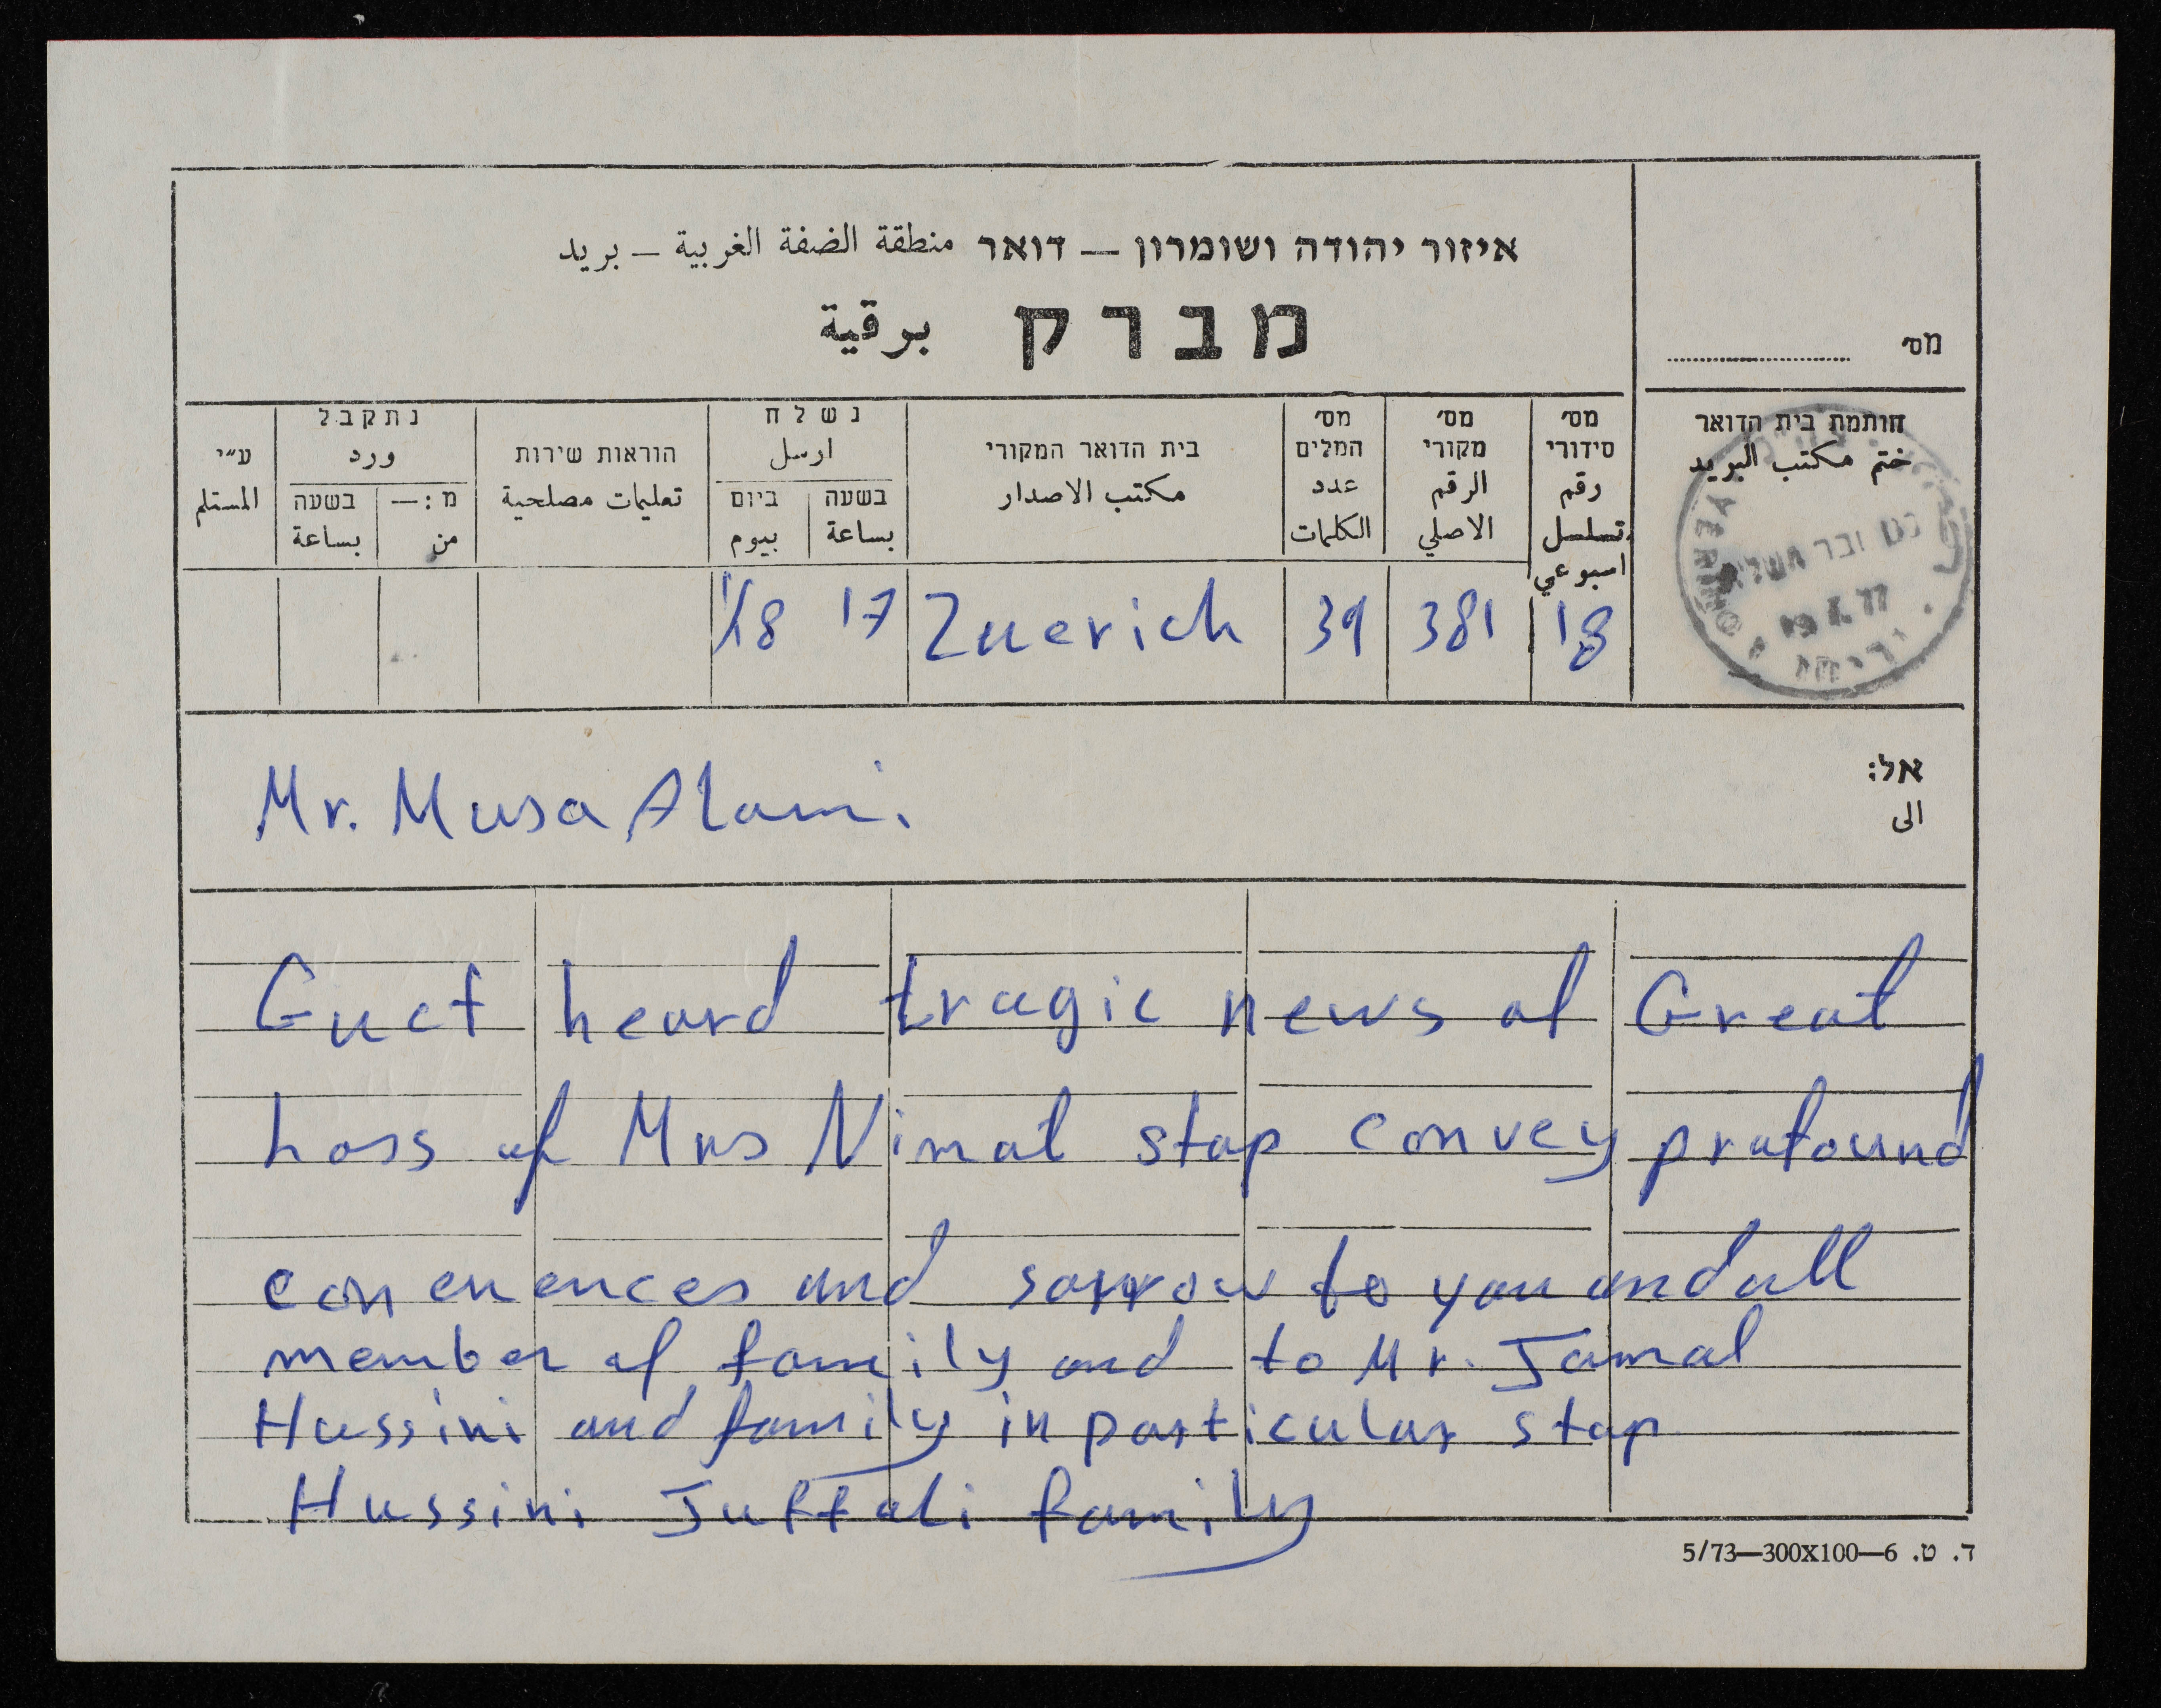 איזור יהודה ושומרון — דואר منطقة الضفة الغربية — بريد
מברק برقية
מס׳
חותמת בית הדואר
ختم مكتب البريد
19.X.77
יריחו
מס׳ סידורי
رقم تسلسل اسبوعي
מס׳ מקורי
الرقم الاصلي
מס׳ המלים
عدد الكلمات
בית הדואר המקורי
مكتب الاصدار
נשלח
ارسل
בשעה
بساعة
ביום
بيوم
הוראות שירות
تعليمات مصلحية
נתקבל
ورد
מ: —
من
בשעה
بساعة
ע״י
المستلم
18 17 Zuerich 39 381 18
אל:
الى
Mr. Musa Alami.
Guct heard tragic news of Great
Loss of Mrs Nimat stop convey profound
con enences and sorrow to you and all
member of family and to Mr. Jamal
Hussini and family in particular stop
Hussini Juffali family
ד. ט. 6—300X100—5/73